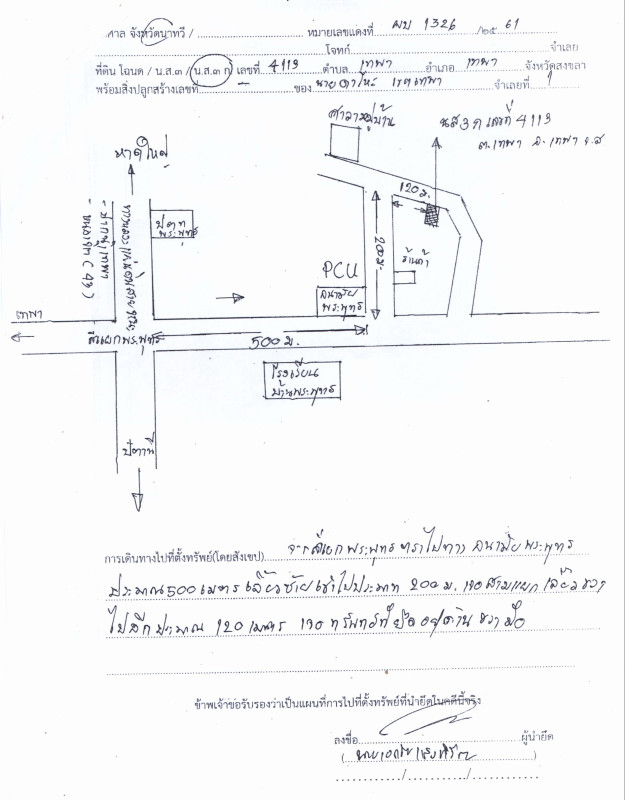 ศาล จังหวัดนาทวี / หมายเลขแดงที่ ผบ 1326 /๒๕ 61
โจทก์ จำเลย
ที่ดิน โฉนด / น.ส.๓ / น.ส.๓ ก เลขที่ 4113 ตำบล เทพา อำเภอ เทพา จังหวัดสงขลา
พร้อมสิ่งปลูกสร้างเลขที่ - ของ จำเลยที่ 1
ศาลาหมู่บ้าน
นส3ก เลขที่ 4113
ต.เทพา อ.เทพา จ.ส
หาดใหญ่
120 ม.
200 ม.
ร้านค้า
PCU
อนามัย
พระพุทธ
เทพา
สี่แยกพระพุทธ
500 ม.
โรงเรียน
บ้านพระพุทธ
ปัตตานี
การเดินทางไปที่ตั้งทรัพย์(โดยสังเขป) จากสี่แยกพระพุทธ ตรงไปทาง อนามัยพระพุทธ
ประมาณ 500 เมตร เลี้ยวซ้ายเข้าไปประมาณ 200 ม. เจอสามแยก เลี้ยวขวา
ไปอีกประมาณ 120 เมตร เจอทรัพย์ที่ยึดอยู่ด้านขวามือ
ข้าพเจ้าขอรับรองว่าเป็นแผนที่การไปที่ตั้งทรัพย์ที่นำยึดในคดีนี้จริง
ลงชื่อ ผู้นำยึด